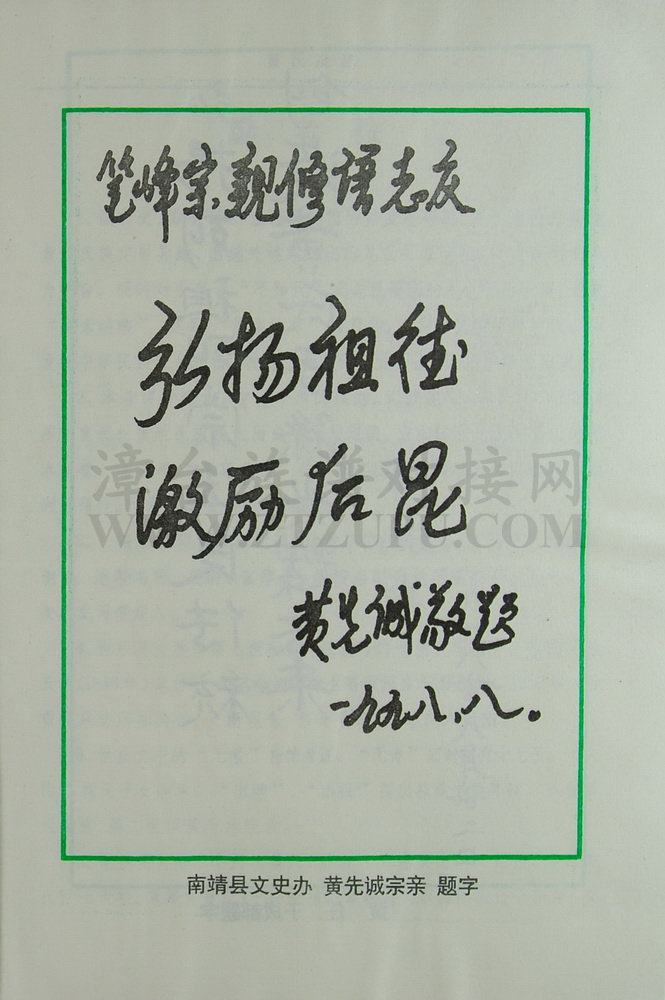 笔峰宗亲修谱志庆
弘扬祖德
激励后昆
漳台族谱对接网
WWW.ZTZUPU.COM
黄先诚敬题
一九九八、八。
南靖县文史办 黄先诚宗亲 题字